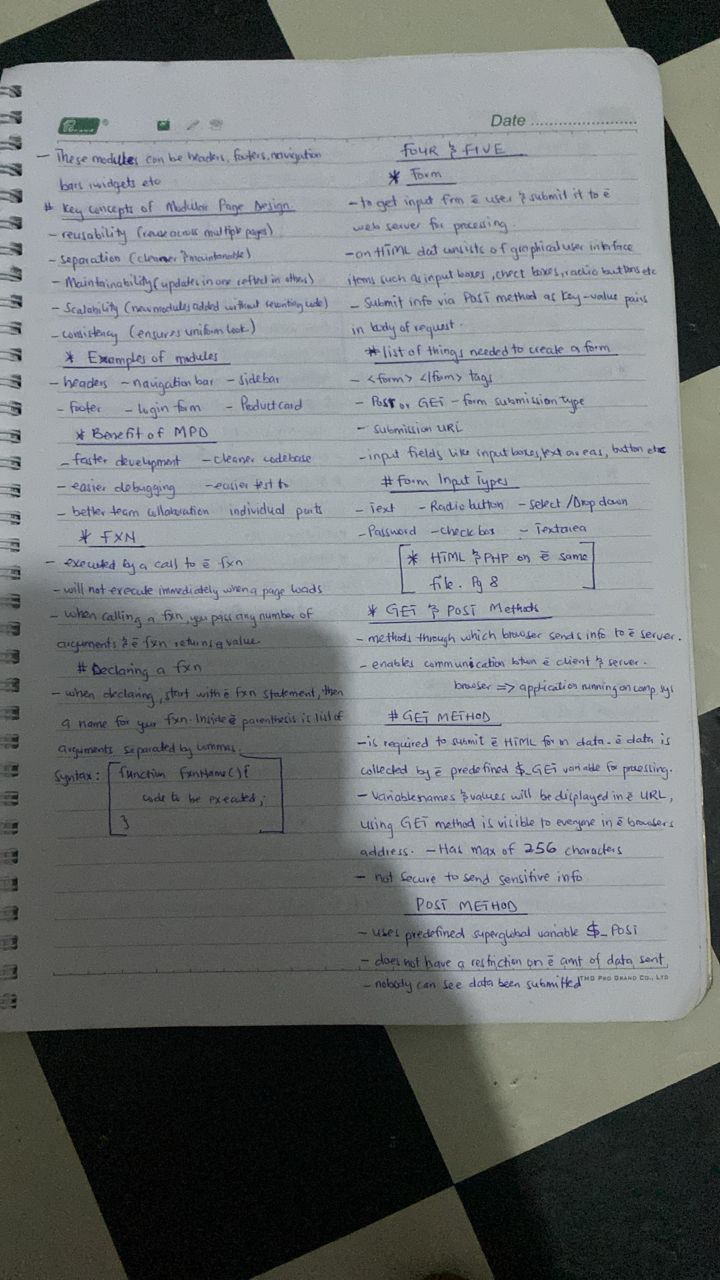 Date
- These modules can be headers, footers, navigation
bars, widgets etc
# Key concepts of Modular Page Design
- reusability (reuse across multiple pages)
- separation (cleaner & maintanable)
- Maintainability (updates in one reflect in others)
- Scalability (new modules added without rewriting code)
- consistency (ensures uniform look)
* Examples of modules
- headers - navigation bar - sidebar
- footer - login form - Product card
* Benefit of MPD
- faster development - cleaner codebase
- easier debugging - easier test to
- better team collaboration individual parts
* FXN
- executed by a call to ē fxn
- will not execute immediately when a page loads
- when calling a fxn, you pass any number of
arguments & ē fxn returns a value.
# Declaring a fxn
- when declaring, start with ē fxn statement, then
a name for your fxn. Inside ē parenthesis is list of
arguments separated by commas.
Syntax: function fxnName(){
code to be executed;
}
FOUR & FIVE
* Form
- to get input frm ē user & submit it to ē
web server for processing.
- an HTML dat consists of graphical user interface
items such as input boxes, check boxes, radio buttons etc
- Submit info via POST method as key-value pairs
in body of request.
# list of things needed to create a form
- <form> </form> tags
- POST or GET - form submission type
- submission URL
- input fields like input boxes, text areas, button etc
# Form Input Types
- Text - Radio button - select / Drop down
- Password - check box - Textarea
* HTML & PHP on ē same
file. Pg 8
* GET & POST Methods
- methods through which browser sends info to ē server.
- enables communication btwn ē client & server.
browser => application running on comp sys
# GET METHOD
- is required to submit ē HTML form data. ē data is
collected by ē predefined $_GET variable for processing.
- Variable names & values will be displayed in ē URL,
using GET method is visible to everyone in ē browsers
address. - Has max of 256 characters
- not secure to send sensitive info
POST METHOD
- uses predefined superglobal variable $_POST
- does not have a restriction on ē amt of data sent
- nobody can see data been submitted